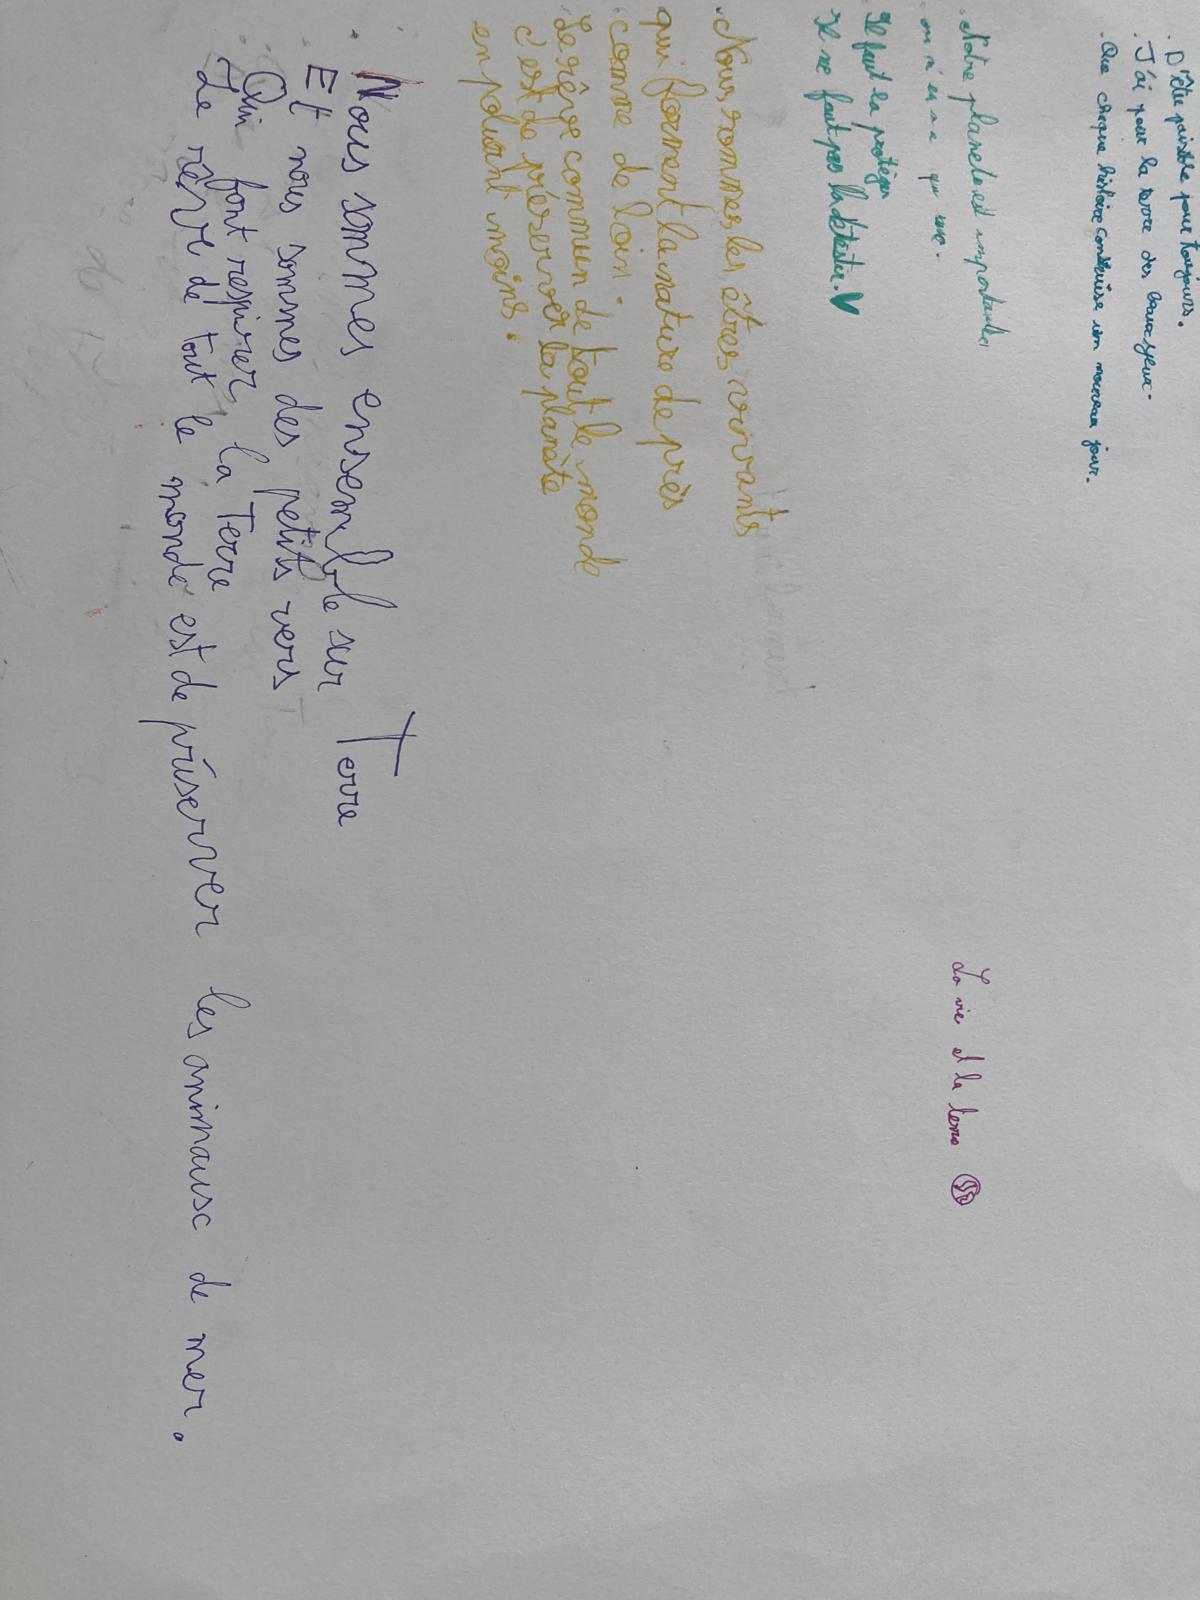 . D'être paisible pour toujours.
. J'ai pour la terre des beaux yeux.
. Que chaque histoire construise un nouveau jour.
. Notre planete est importante
on n'en a qu'une.
Il faut la protéger
Il ne faut pas la détester. ♥
La vie et la terre
. Nous sommes les êtres vivants
qui forment la nature de près
comme de loin.
Le rêve commun de tout le monde
c'est de préserver la planète
en poluant moins.
. Nous sommes ensemble sur Terre
. Et nous sommes des petits vers
. Qui font respirer la Terre
. Le rêve de tout le monde est de préserver les animaux de mer.